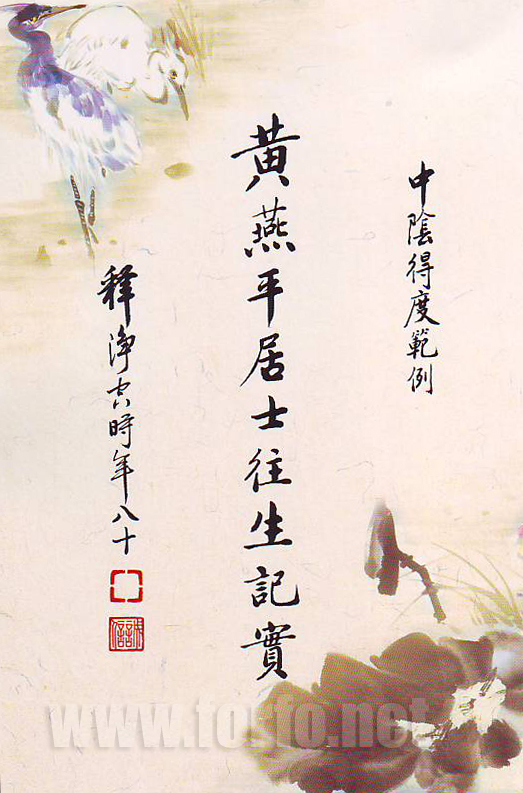 中陰得度範例
黃燕平居士往生記實
釋淨空時年八十
www.fosfo.net